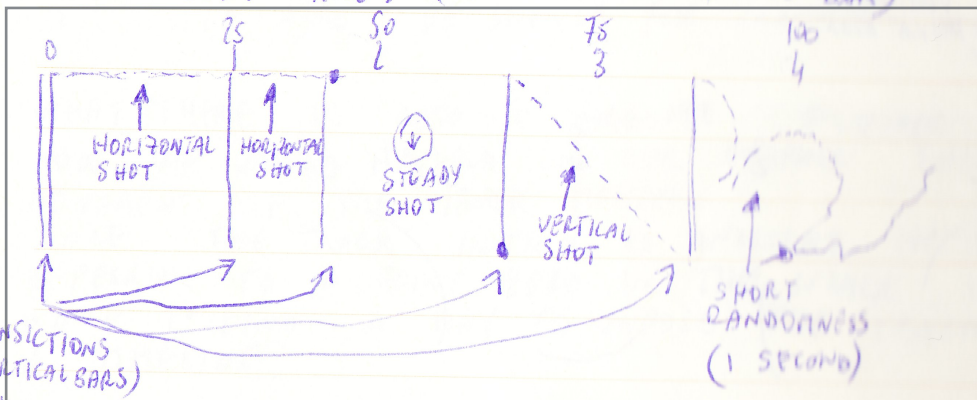 0 25 50 75 100
2 3 4
HORIZONTAL
SHOT
HORIZONTAL
SHOT
STEADY
SHOT
VERTICAL
SHOT
SHORT
RANDOMNESS
(1 SECOND)
NSICTIONS
RTICAL BARS)